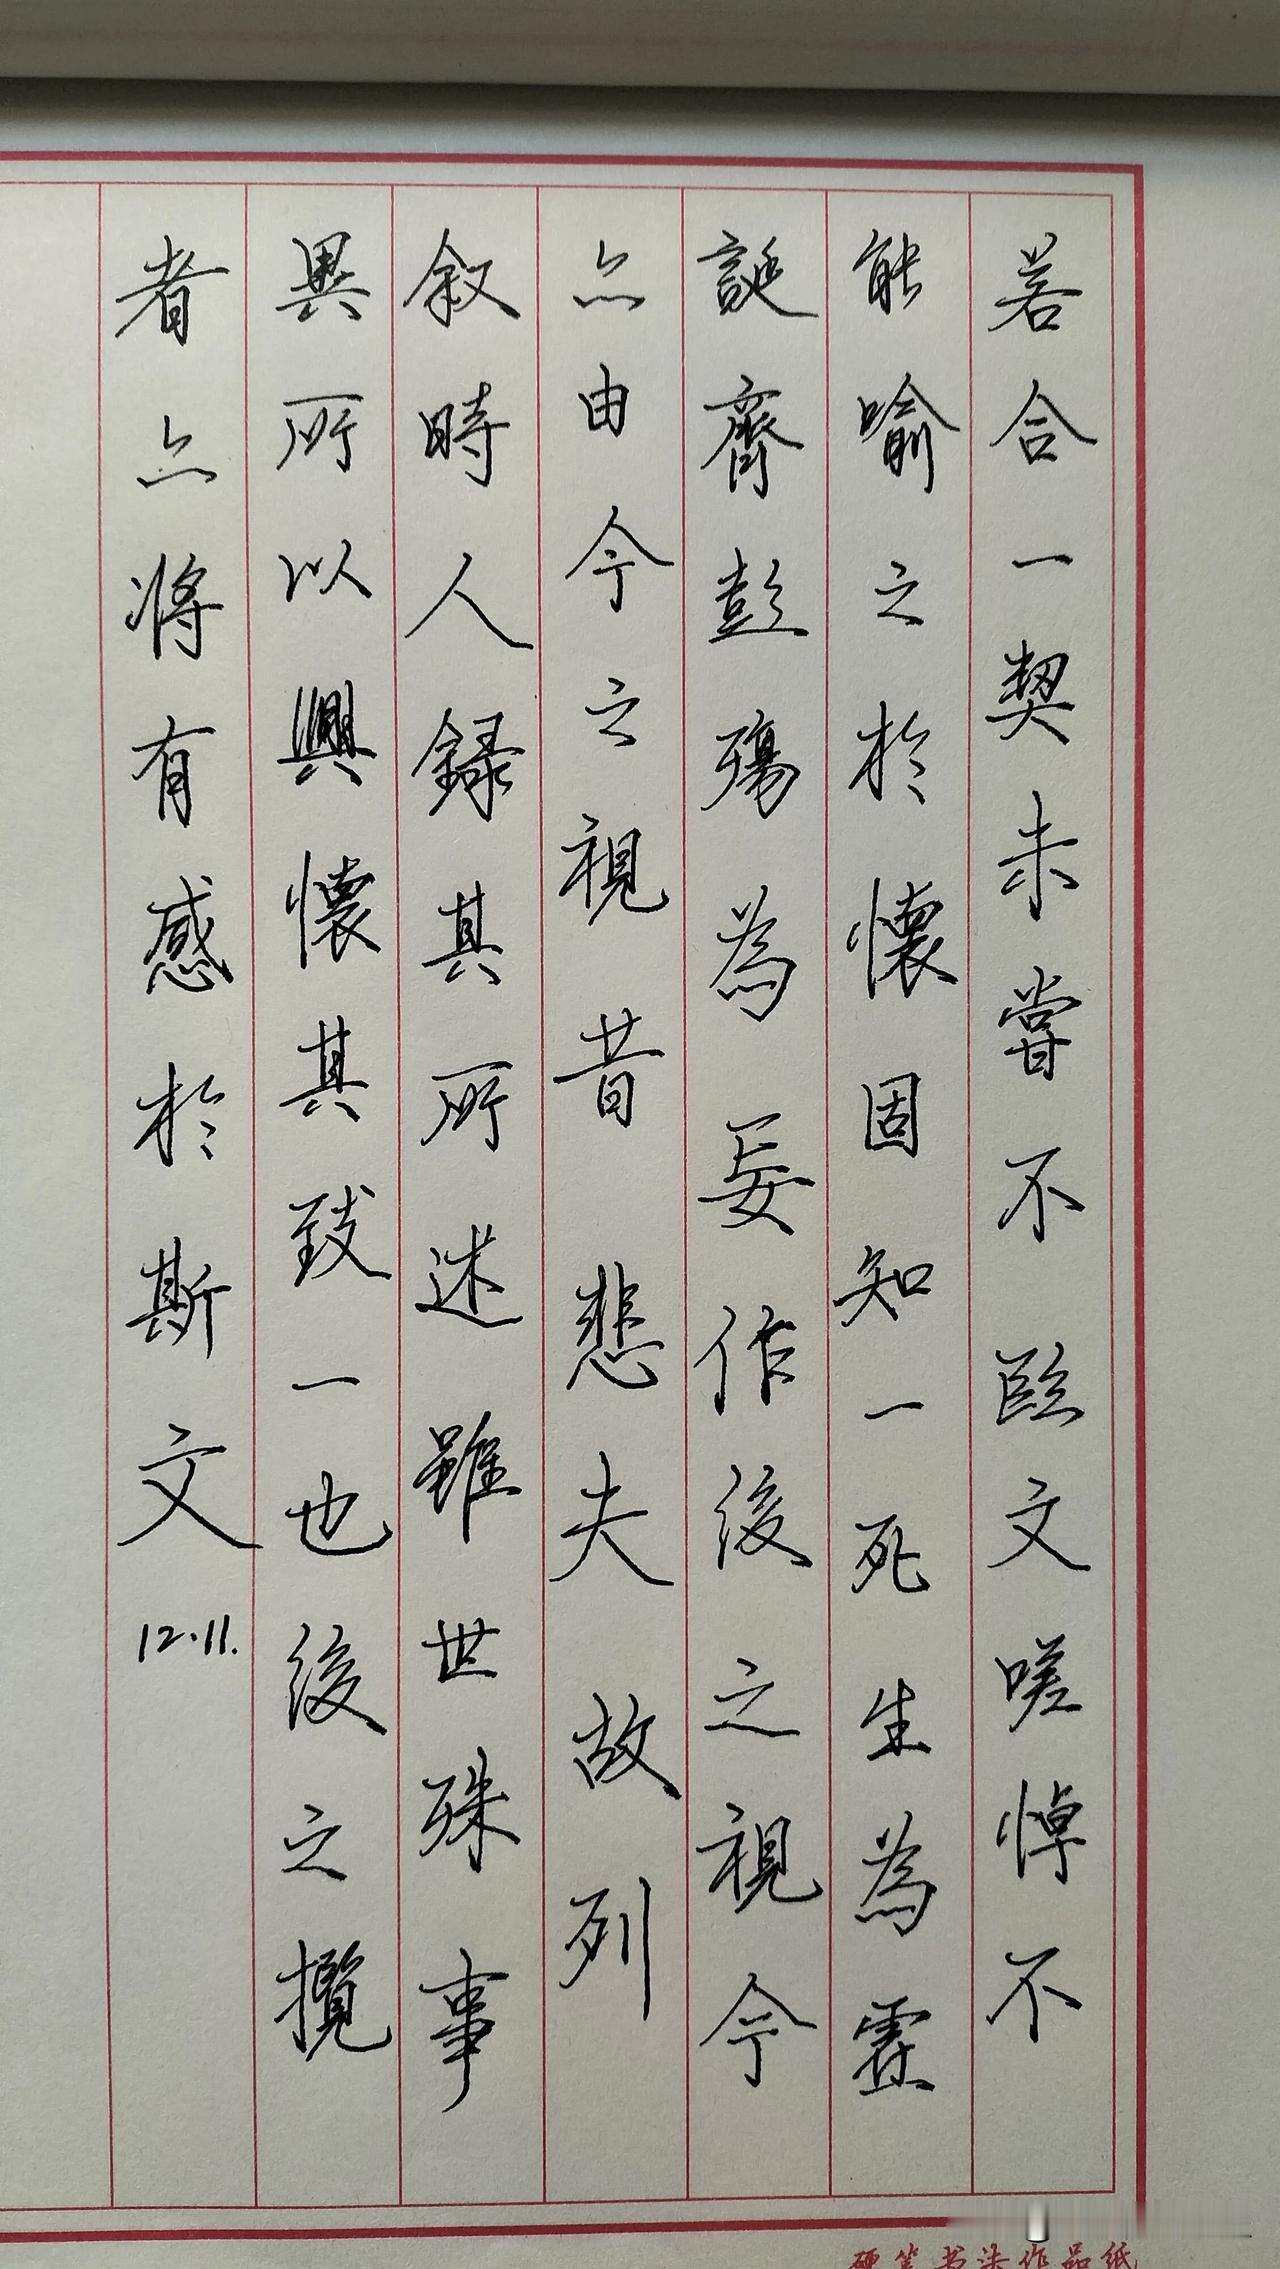 若合一契未嘗不臨文嗟悼不
能喻之於懷固知一死生為虛
誕齊彭殤為妄作後之視今
亦由今之視昔悲夫故列
叙時人錄其所述雖世殊事
異所以興懷其致一也後之攬
者亦將有感於斯文
12.11.
硬笔书法作品纸